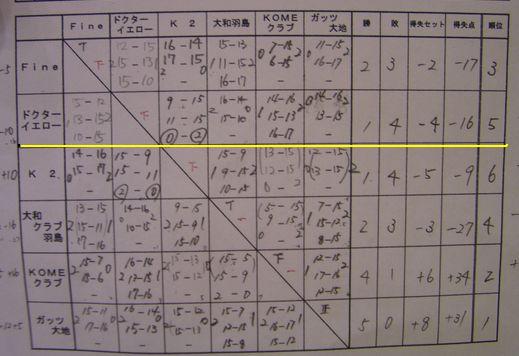 Fine ドクターイエロー K 2 大和羽島 KOMEクラブ ガッツ大地 勝 敗 得失セット 得失点 順位
Fine 2 3 -2 -17 3
12-15 16-14 15-13 7-15 11-15
15-13 17-15 11-15 6-15 16-17
15-10 - 16-17 - -
ドクターイエロー 1 4 -4 -16 5
15-12 9-15 16-14 14-16 14-16
13-15 11-15 15-10 15-13 13-15
10-15 0-2 - 16-17 -
K 2. 1 4 -5 -9 6
14-16 15-9 15-9 13-15 12-15
15-17 15-11 9-15 12-15 13-15
- 2-0 10-15 0-2
大和クラブ羽島 2 3 -3 -27 4
13-15 14-16 9-15 5-15 7-15
15-11 10-15 15-9 9-15 15-12
17-16 - 15-10 0-2 8-15
KOMEクラブ 4 1 +6 +34 2
15-7 16-14 15-13 15-5 12-15
15-6 13-15 15-12 15-9 17-16
- 17-16 - 2-0 12-15
ガッツ大地 5 0 +8 +31 1
15-11 16-14 15-12 15-7 15-12
17-16 15-13 15-13 12-15 16-17
- - - 15-8 15-12